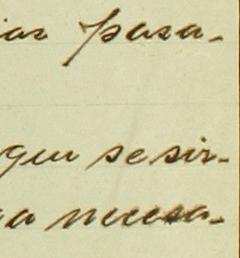 ias pasa-
que se sir-
na necesa-